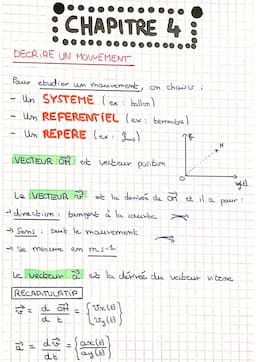 CHAPITRE 4 :
DECRIRE UN MOUVEMENT
Pour etudier un mouvement, on choisi :
- Un SYSTEME ( ex : ballon )
- Un REFERENTIEL ( ex : terrestre )
- Un REPERE ( ex :
M
VECTEUR OM est vecteur position
Le VECTEUR v est la dérivée de OM et il a pour :
→ direction : tangent à la courbe
→ Sens : suit le mouvement
→ se mesure en m.s⁻¹
Le vecteur a est la dérivée du vecteur vitesse
RECAPITULATIF
v = d OM / d t = { vx(t) vy(t)
a = dv / dt = { ax(t) ay(t)